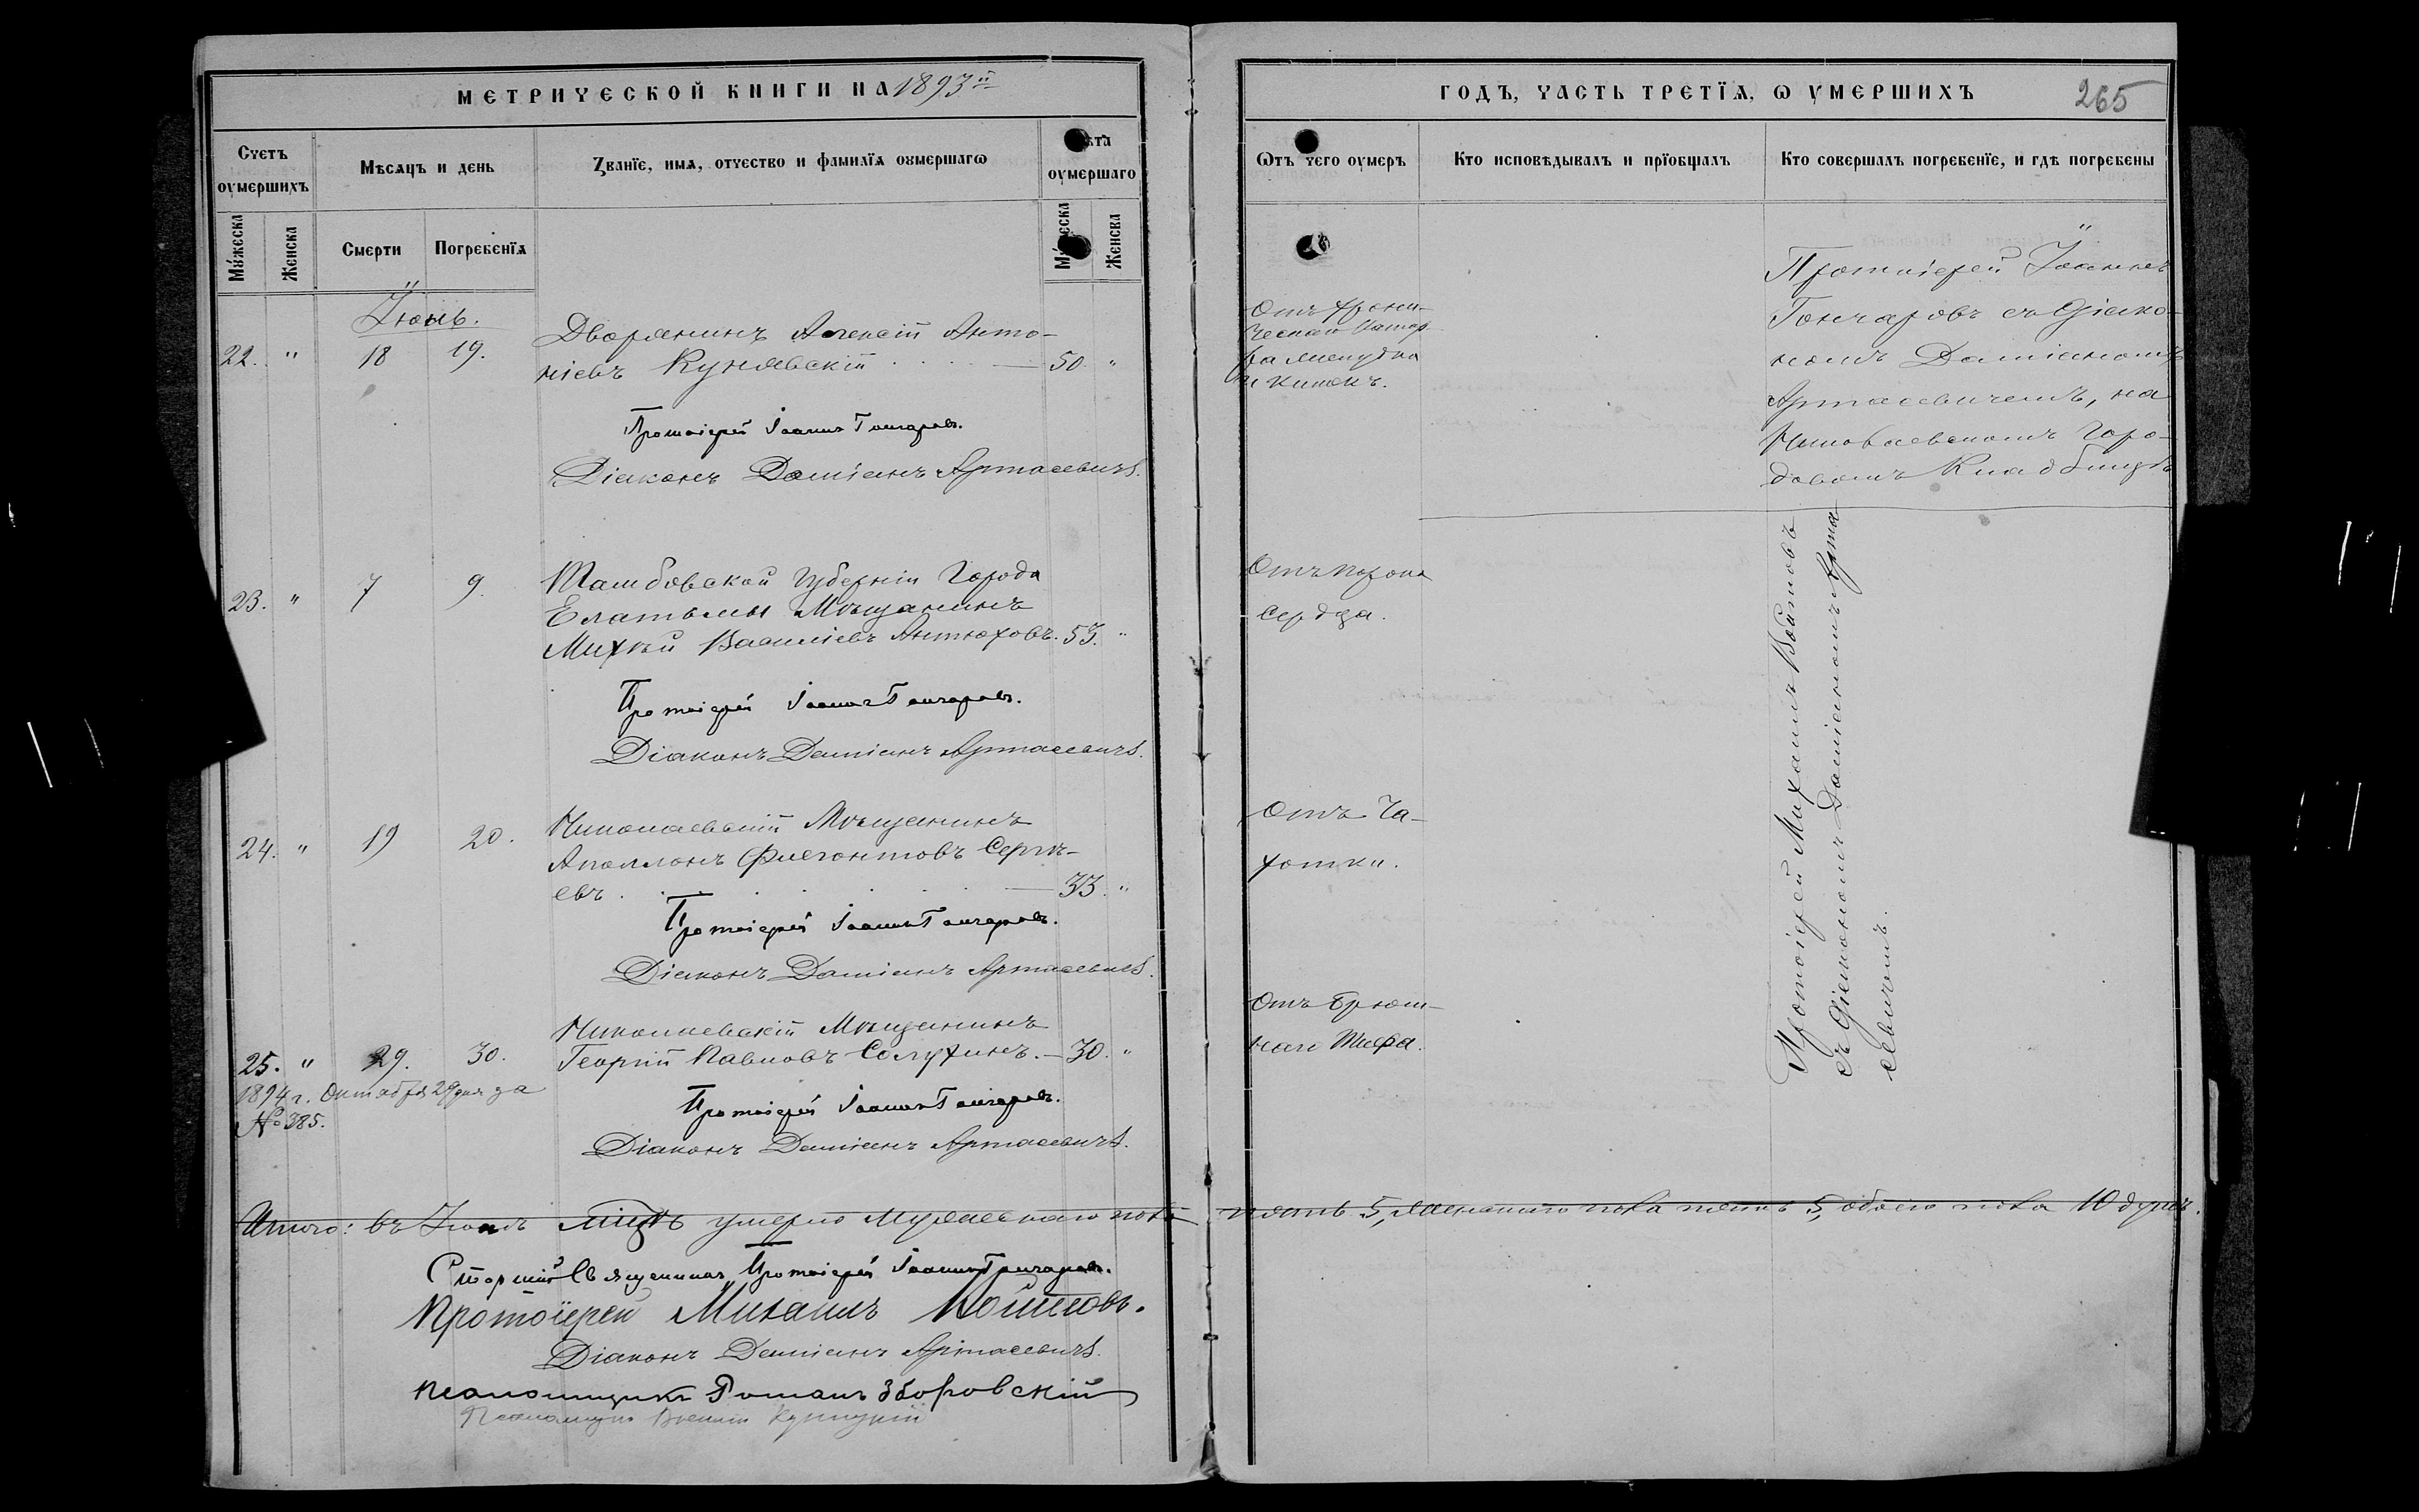 МЕТРИЧЕСКОЙ КНИГИ НА 1893й
ГОДЪ, ЧАСТЬ ТРЕТЇѦ, Ѡ УМЕРШИХЪ
265
Счетъ оумершихъ
Мѣсяцъ и день
Званїе, имѧ, отчество и фамилїѧ оумершагѡ
Лѣта оумершаго
Мужеска
Женска
Смерти
Погребенїѧ
Мужеска
Женска
Ѿтъ чего оумеръ
Кто исповѣдывалъ и прїобщалъ
Кто совершалъ погребенїе, и гдѣ погребены
Іюнь.
22. " 18 19.
Дворянинъ Алексій Анто-
ніевъ Кунявскій 50. "
Отъ хрони-
ческаго катар-
ра желудка
и кишокъ.
Протоіерей Іоаннъ
Гончаровъ съ Діако-
номъ Даміаномъ
Артасевичемъ, на
Николаевскомъ Горо-
довомъ Кладбищѣ
Протоіерей Іоаннъ Гончаровъ.
Діаконъ Даміанъ Артасевичъ.
23. " 7 9.
Тамбовской Губерніи Города
Елатьмы Мѣщанинъ
Михѣй Василіевъ Антюховъ. 53. "
Отъ порока
сердца.
Протоіерей Михаилъ Войтовъ
съ Діакономъ Даміаномъ Арта
севичемъ.
Протоіерей Іоаннъ Гончаровъ.
Діаконъ Даміанъ Артасевичъ.
24. " 19 20.
Николаевскій Мѣщанинъ
Аполлонъ Флегонтовъ Сергѣ-
евъ. 33 "
Отъ Ча-
хотки.
Протоіерей Іоаннъ Гончаровъ.
Діаконъ Даміанъ Артасевичъ.
25. " 29. 30.
Николаевскій Мѣщанинъ
Георгій Павловъ Солухинъ. 30. "
Отъ брюш-
наго Тифа.
1894 г. Октября 29 дня за
№ 385.
Протоіерей Іоаннъ Гончаровъ.
Діаконъ Даміанъ Артасевичъ.
Итого: въ Іюнѣ мцѣ умерло Мужескаго пола пять 5, Женскаго пола пять 5, обоего пола 10 душъ.
Старшій Священникъ Протоіерей Іоаннъ Гончаровъ.
Протоіерей Михаилъ Войтовъ.
Діаконъ Даміанъ Артасевичъ.
Псаломщикъ Романъ Зборовскій
Псаломщикъ